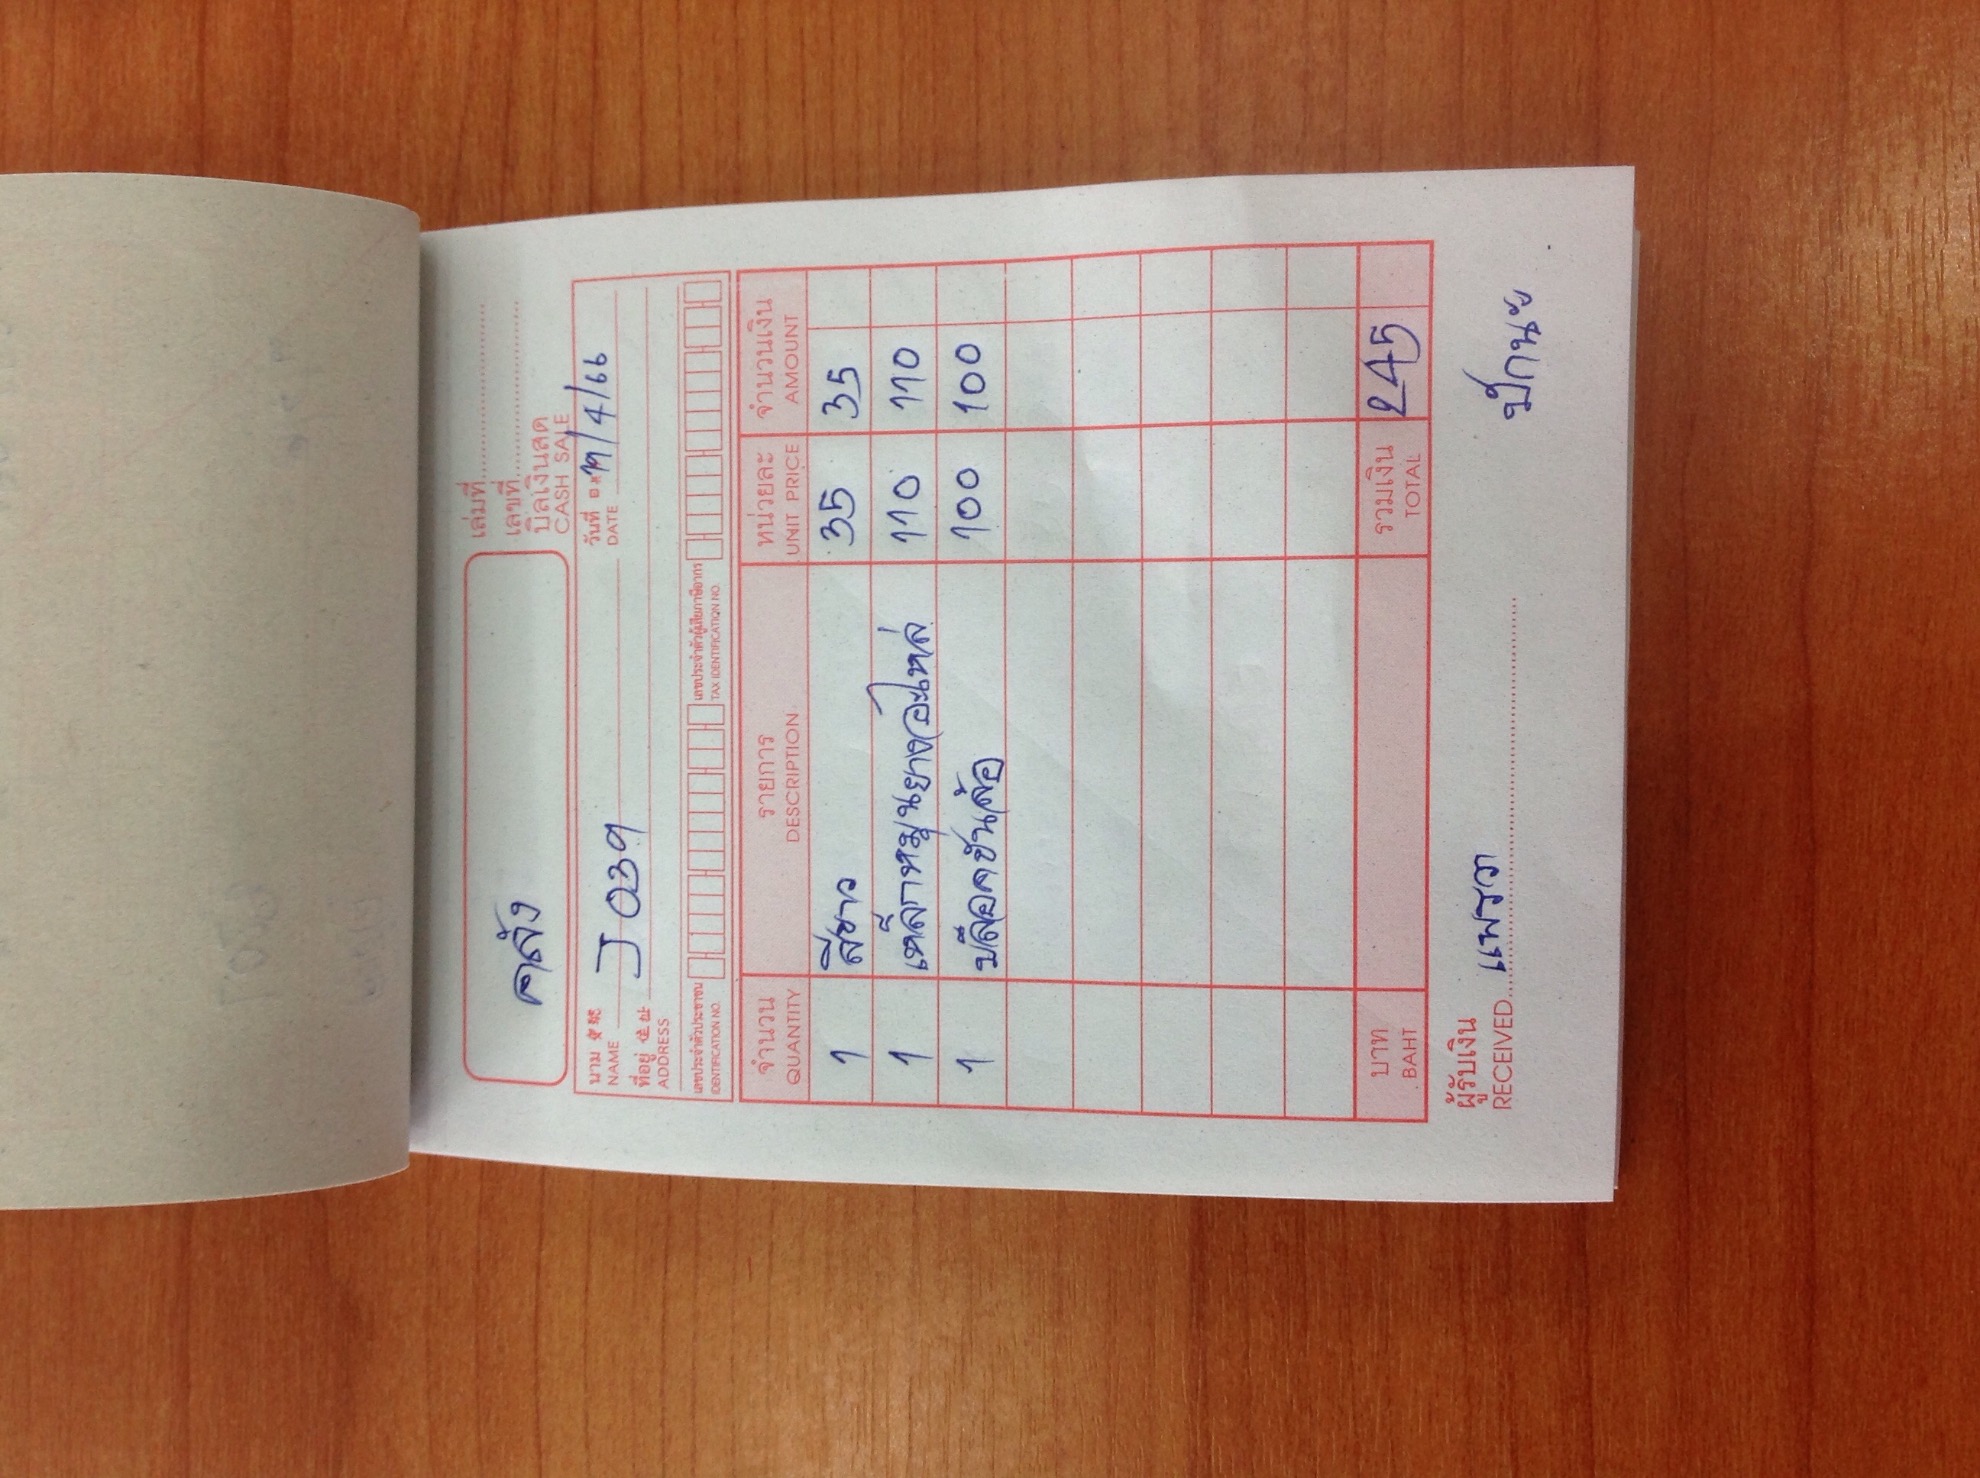 คลัง
เล่มที่
เลขที่
บิลเงินสด
CASH SALE
นาม
NAME
J 039
วันที่
DATE
/4/66
ที่อยู่ 住址
ADDRESS
เลขประจำตัวประชาชน
IDENTIFICATION NO.
เลขประจำตัวผู้เสียภาษีอากร
TAX IDENTIFICATION NO.
จำนวน รายการ หน่วยละ จำนวนเงิน
QUANTITY DESCRIPTION UNIT PRICE AMOUNT
1 สีขาว 35 35
1 เหล็กหมุนยางอะไหล่ 110 110
1 บล็อคขันล้อ 100 100
บาท รวมเงิน 245
BAHT TOTAL
ผู้รับเงิน
RECEIVED แพรวา